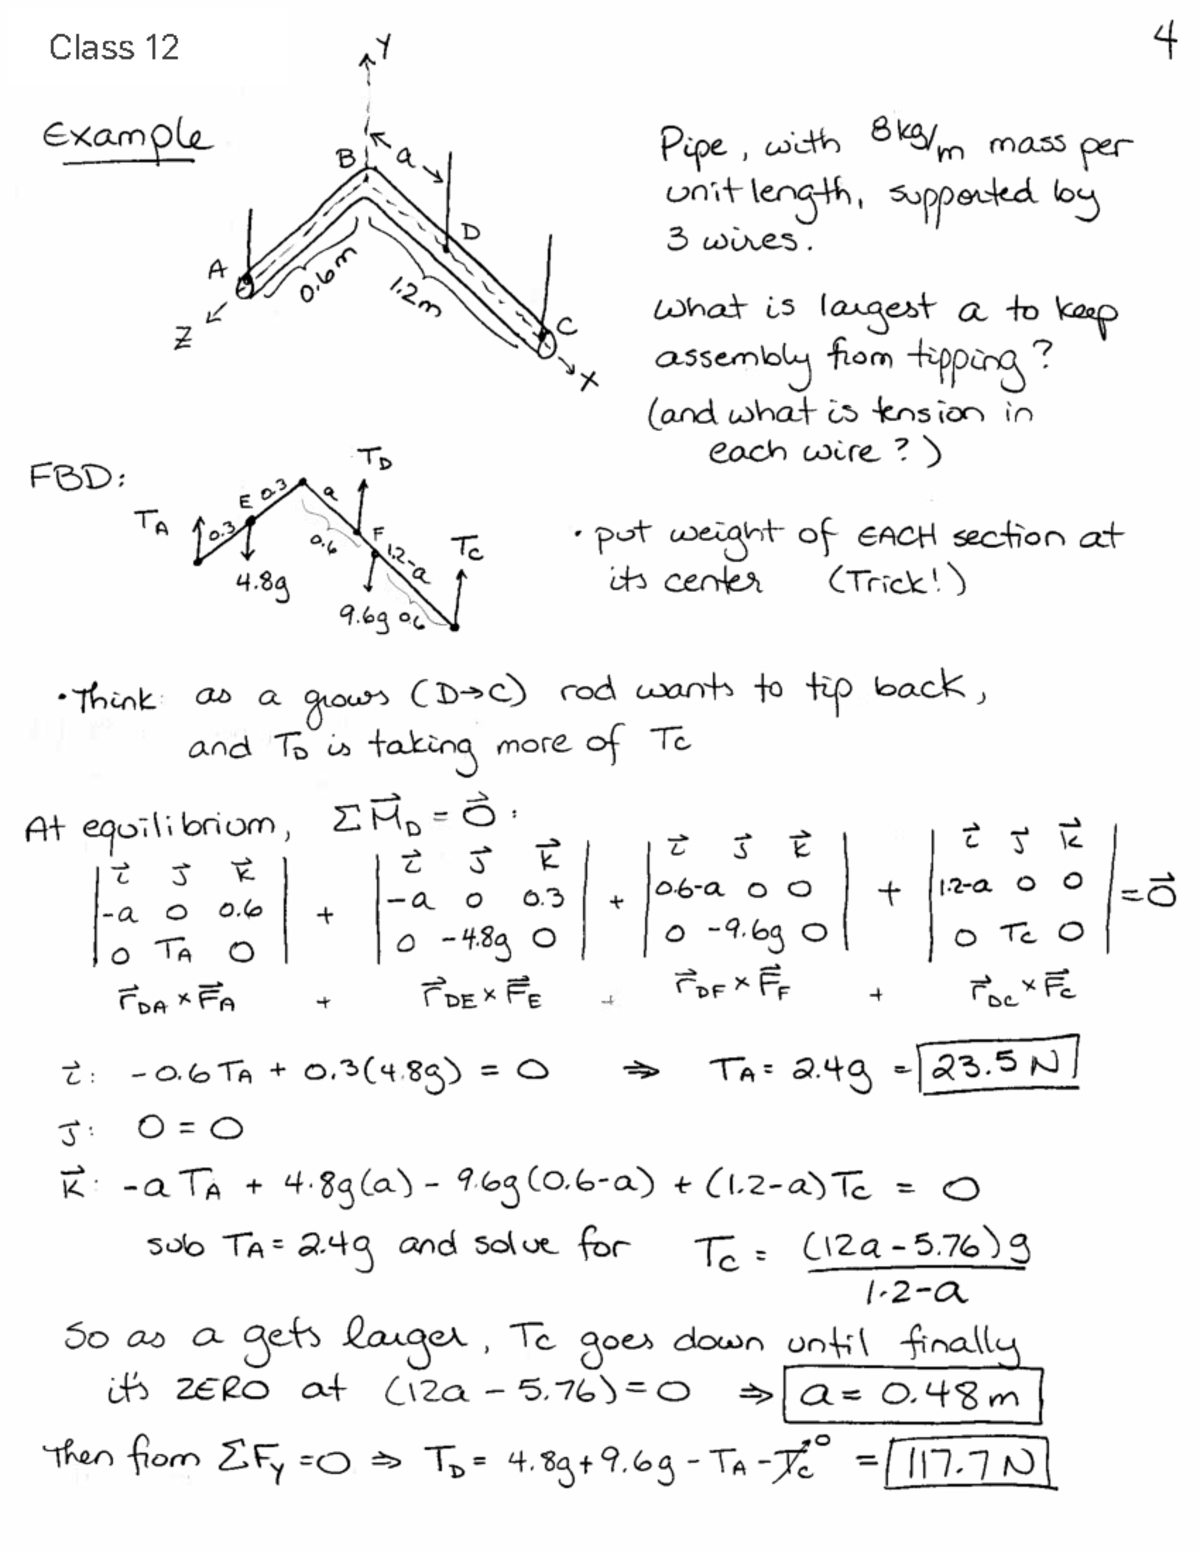 Class 12
4
Example
Y
B
a
D
A
0.6m
1.2m
C
Z
X
Pipe, with 8kg/m mass per
unit length, supported by
3 wires.
What is largest a to keep
assembly from tipping?
(and what is tension in
each wire?)
FBD:
TA
0.3
E
0.3
a
TD
0.6
F
1.2-a
TC
4.8g
9.6g
0.6
• put weight of EACH section at
its center (Trick!)
• Think: as a grows (D→C) rod wants to tip back,
and TD is taking more of TC
At equilibrium, ΣM⃗D = 0⃗ :
| i⃗ j⃗ k⃗ | | i⃗ j⃗ k⃗ | | i⃗ j⃗ k⃗ | | i⃗ j⃗ k⃗ |
| -a 0 0.6 | + | -a 0 0.3 | + | 0.6-a 0 0 | + | 1.2-a 0 0 | = 0⃗
| 0 TA 0 | | 0 -4.8g 0 | | 0 -9.6g 0 | | 0 TC 0 |
r⃗DA × F⃗A + r⃗DE × F⃗E + r⃗DF × F⃗F + r⃗DC × F⃗C
i⃗: -0.6TA + 0.3(4.8g) = 0 ⇒ TA = 2.4g = 23.5 N
j⃗: 0 = 0
k⃗: -a TA + 4.8g(a) - 9.6g(0.6-a) + (1.2-a)TC = 0
sub TA = 2.4g and solve for TC = (12a - 5.76)g
1.2-a
So as a gets larger, TC goes down until finally
it's ZERO at (12a - 5.76) = 0 ⇒ a = 0.48 m
Then from ΣFy = 0 ⇒ TD = 4.8g + 9.6g - TA - TC→0 = 117.7 N